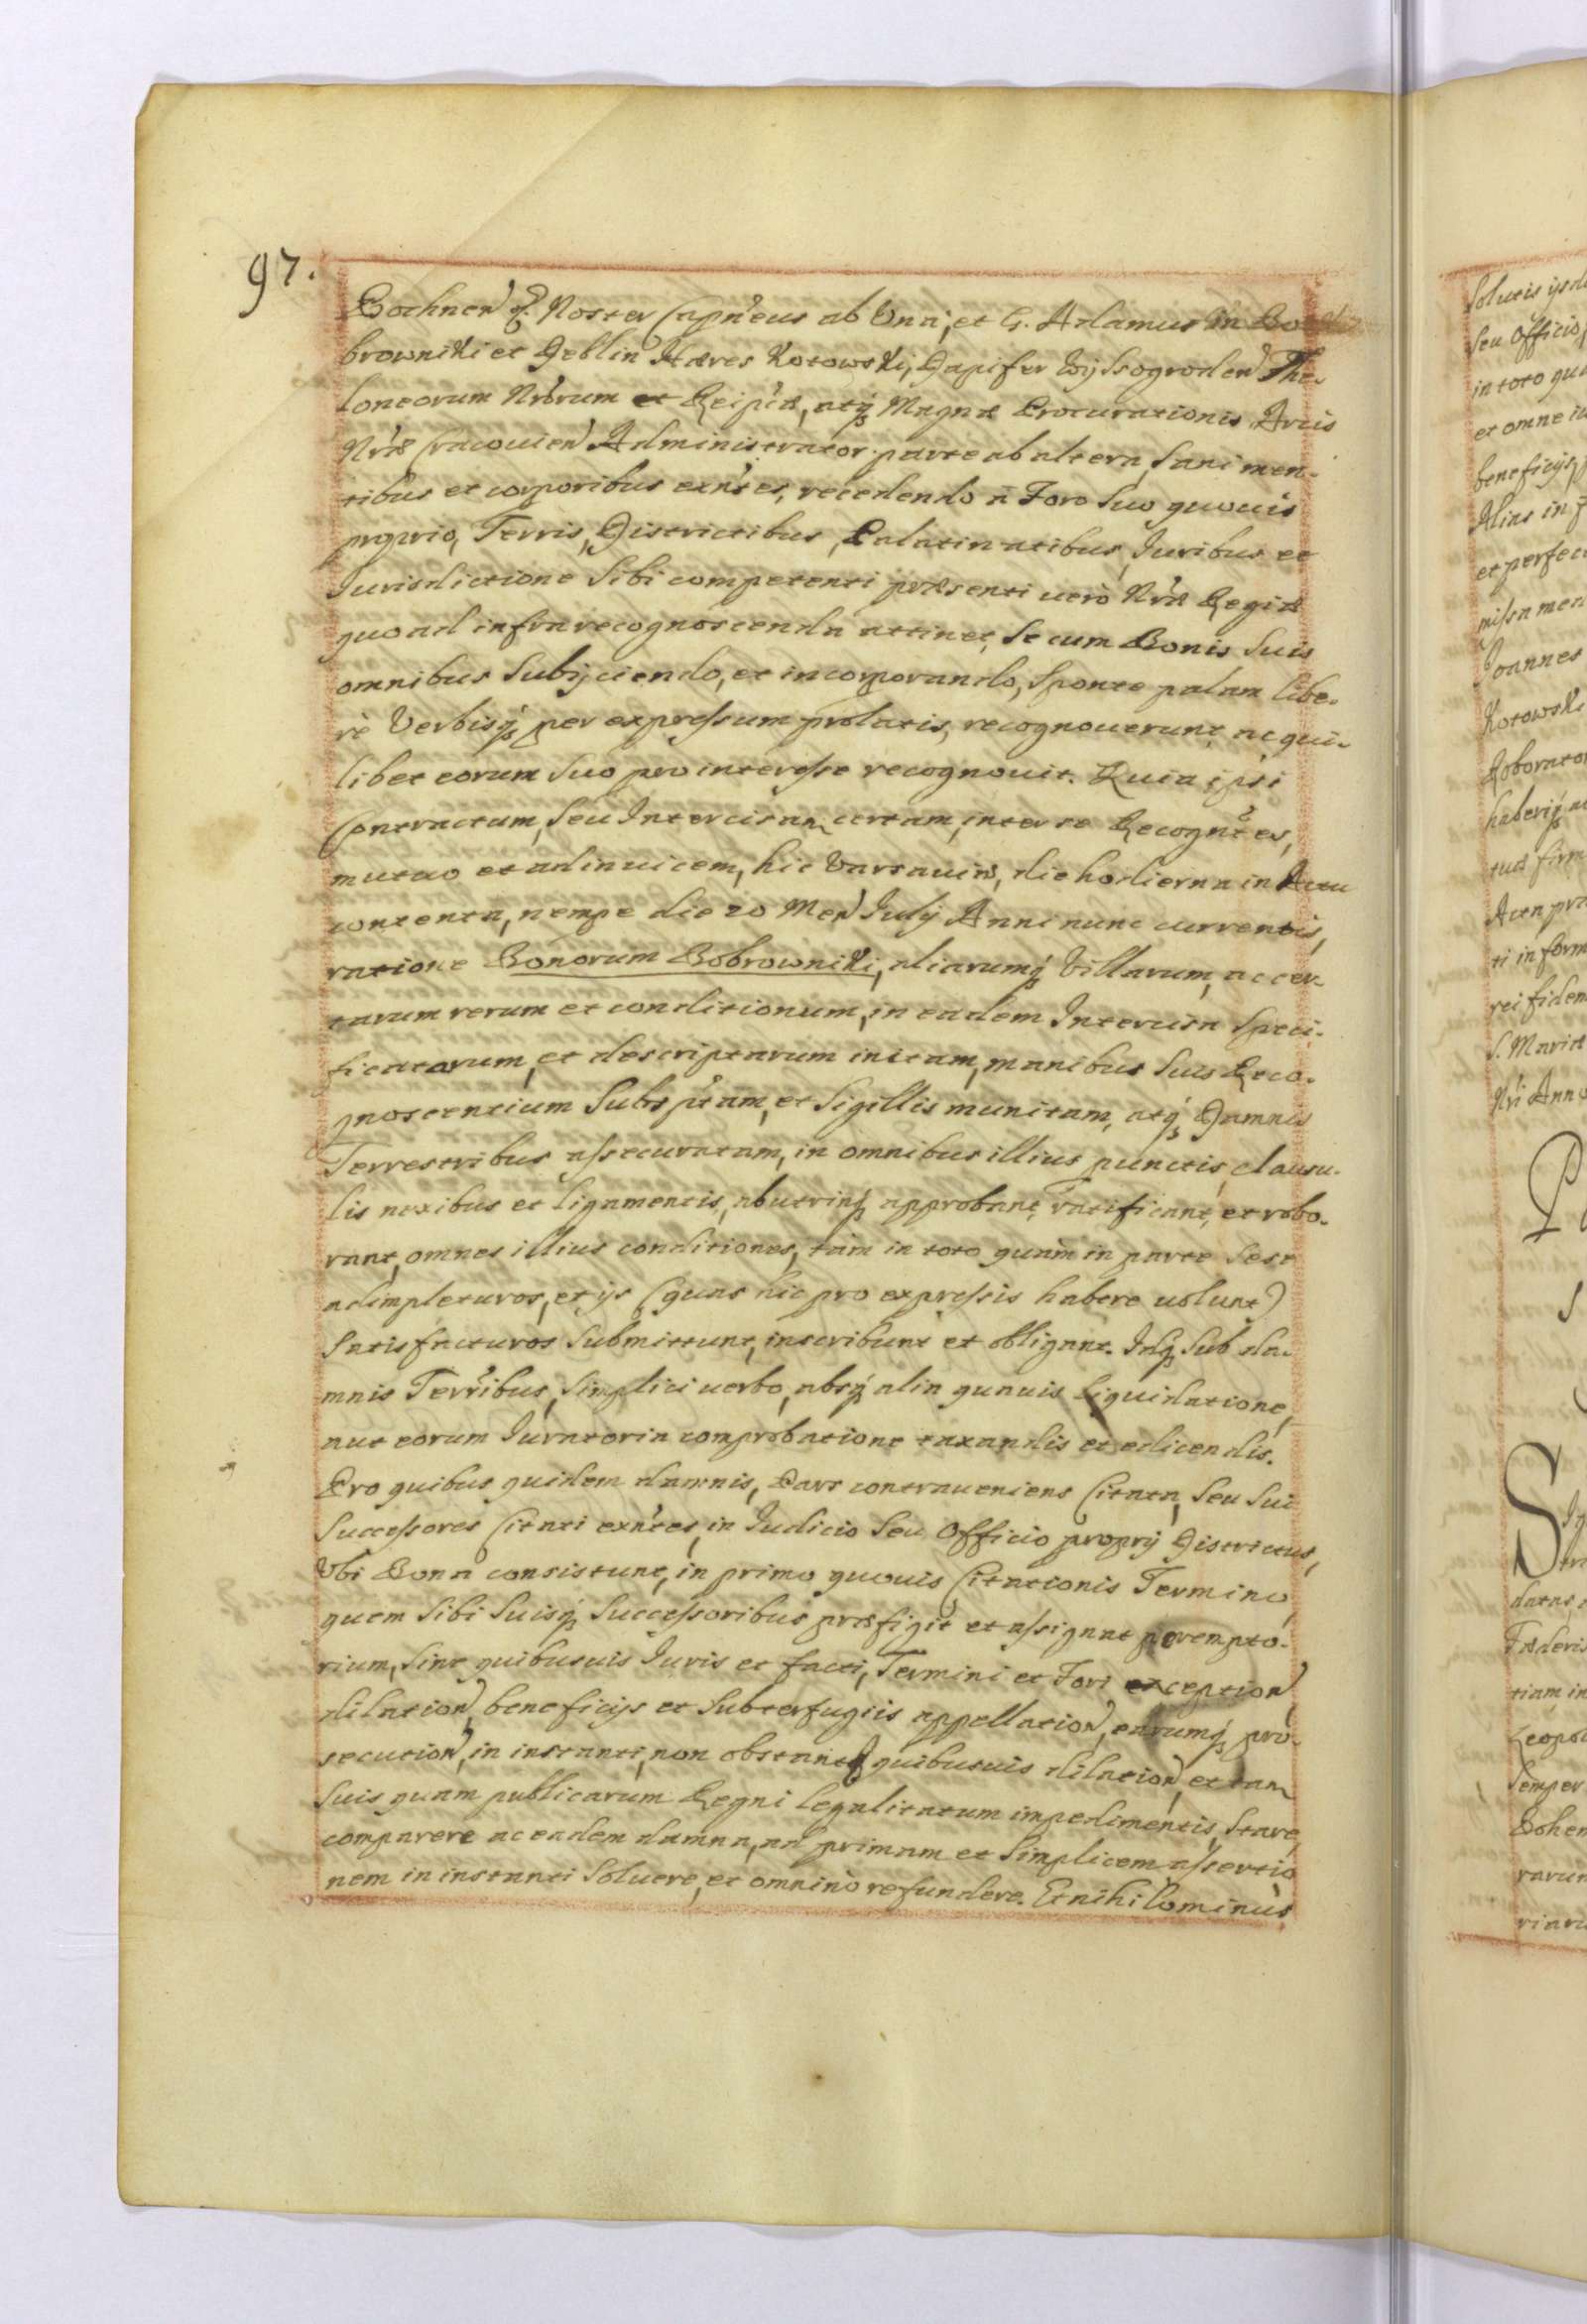 97.
Bochnen q. Noster Capn̄eus ab Una, et G. Adamus in Bo
browniki et Deblin Hæres Kotowski, Dapifer Wyssogroden The-
loneorum Nr̄orum et Reip̄cæ, atq Magnæ Procurationis Arcis
Nr̄æ Cracovien Administrator parte ab altera, sani men-
tibus et corporibus exn̄tes, recedendo à Foro suo quovis
proprio, Terris, Districtibus, Palatinatibus, Juribus et
Jurisdictione sibi competenti præsenti verò Nr̄æ Regiæ
quoad infra recognoscenda attinet, se cum Bonis suis
omnibus subijciendo, et incorporando, sponte palam libe-
rè verbisq per expressum prolatis, recognoverunt, ac qui-
libet eorum suo pro interesse recognovit. Quia ipsi
Contractum, seu Intercisam certam, inter se Recogn̄tes,
mutuo et adinvicem, hic Varsaviæ, die hodierna in Actu
contenta, nempe die 20 Men July Anni nunc currentis,
ratione Bonorum Bobrowniki, aliarumq Villarum, ac cer-
tarum rerum et conditionum, in eadem Intercisa speci-
ficatarum, et descriptarum initam, manibus suis Reco-
gnoscentium subsp̄tam, et sigillis munitam, atq Damnis
Terrestribus assecuratam, in omnibus illius punctis, clausu-
lis nexibus et ligamentis, ab utrinq approbant, ratificant, et robo-
rant, omnes illius conditiones, tàm in toto quàm in parte sese
adimpleturos, et ijs (quas hic pro expressis habere volunt)
satisfacturos submittunt, inscribunt et obligant. Idq sub da-
mnis Terr̄ibus, simplici verbo, absq alia quavis liquidatione,
aut eorum Juratoria comprobatione taxandis et edicendis.
Pro quibus quidem damnis, Pars contraveniens Citata, seu sui
Successores Citati exn̄tes, in Judicio seu Officio proprij Districtus,
Ubi Bona consistunt, in primo quovis Citationis Termino,
quem sibi suisq successoribus præfigit et assignat perempto-
rium, sine quibusvis Juris et facti, Termini et Fori exception,
dilation, beneficijs et subterfugiis appellation, earumq pro-
secution, in instanti, non obstante quibusvis dilation, et tam
suis quam publicarum Regni legalitatum impedimentis, stare,
comparere ac eadem damna, ad primam et simplicem assertio
nem in instanti solvere, et omninò refundere. Et nihilominùs